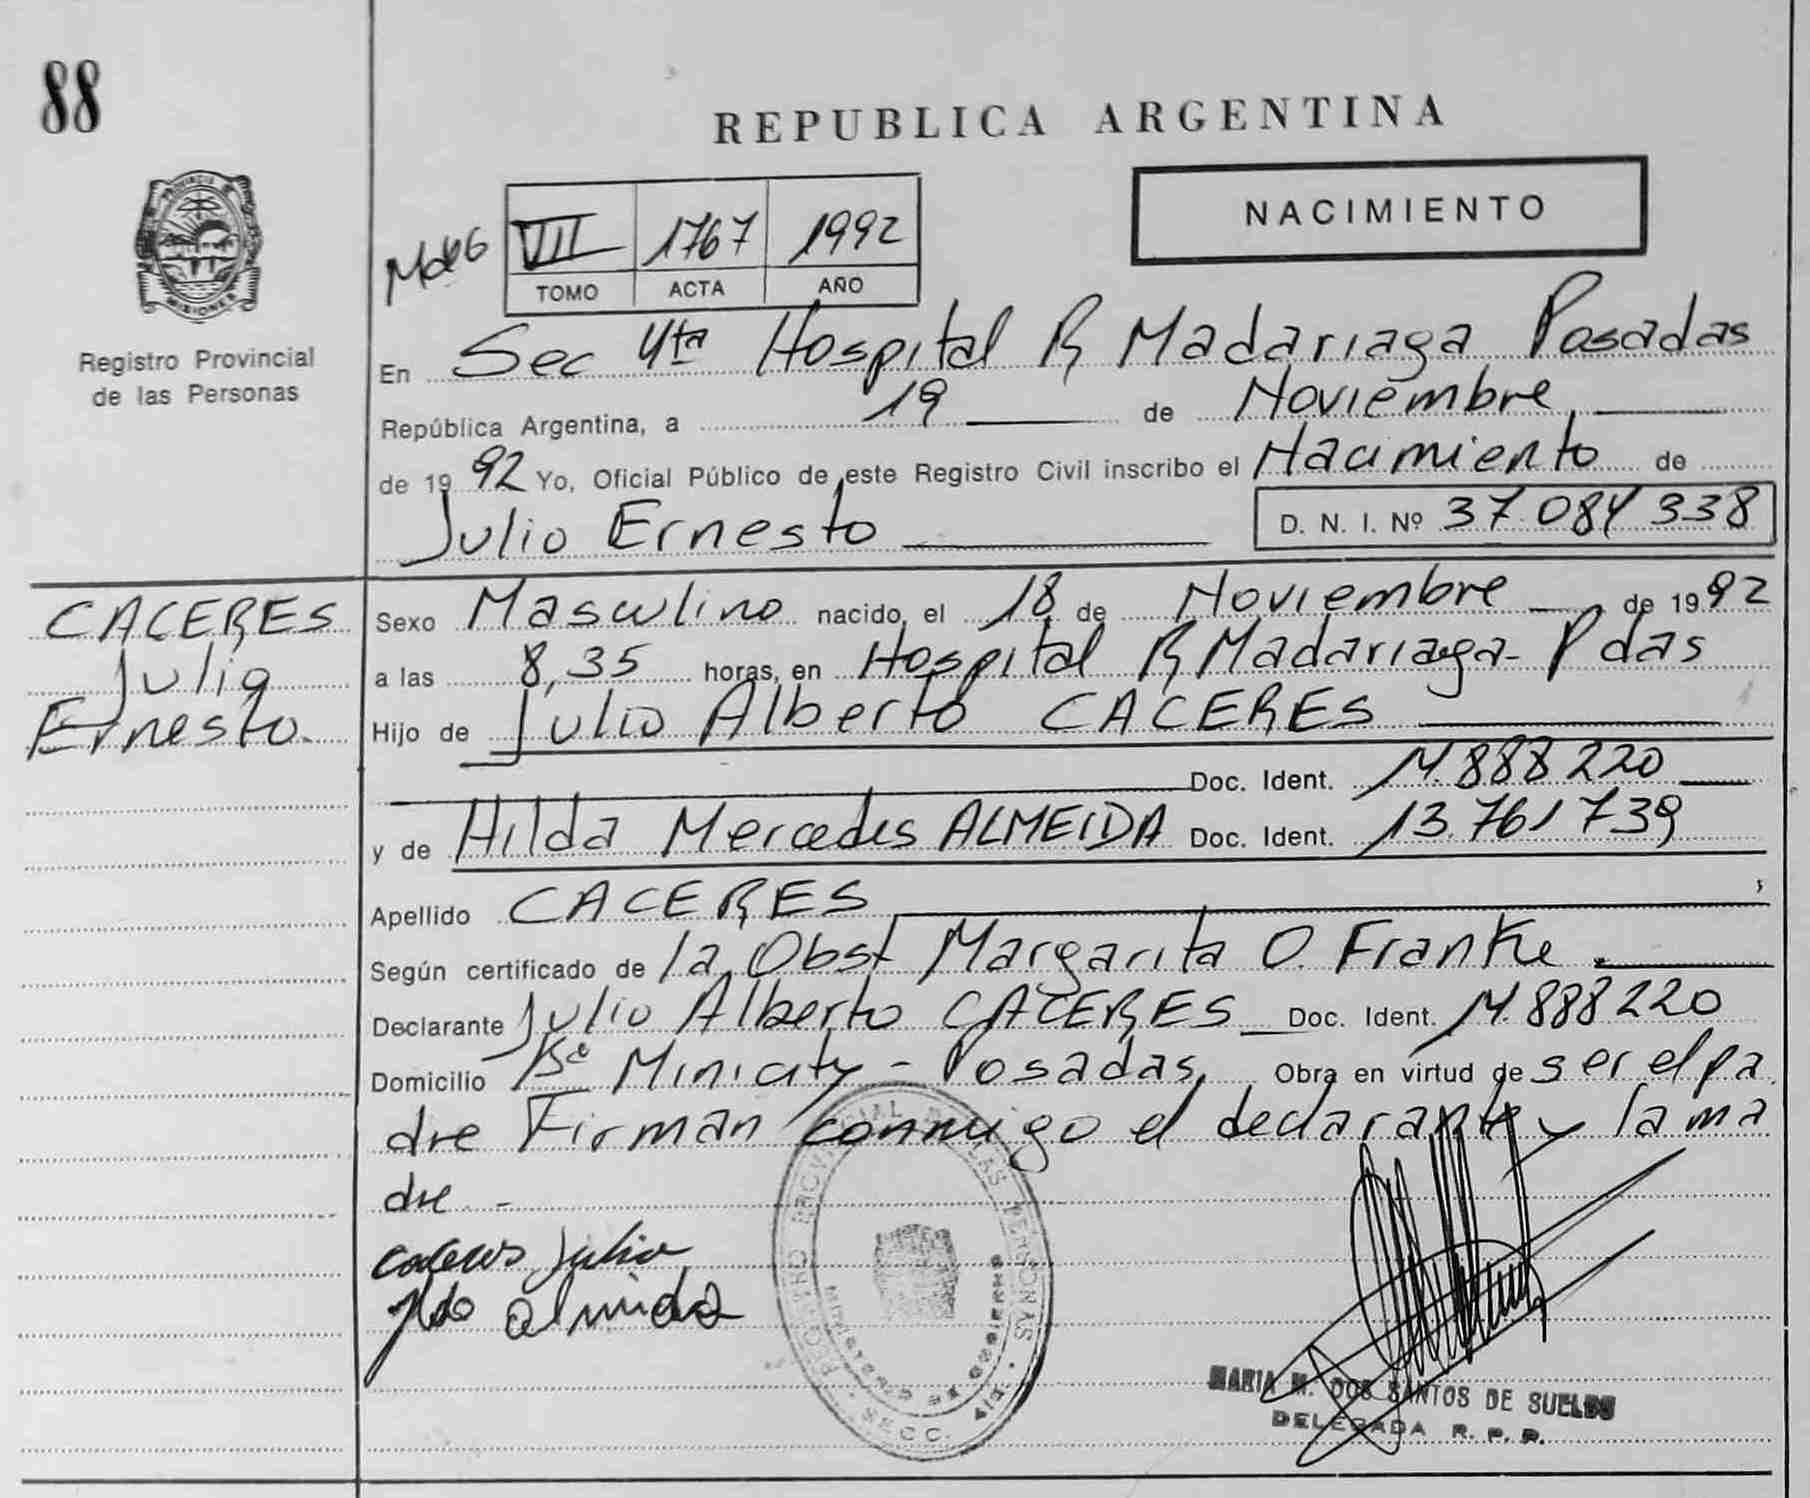 88
REPUBLICA ARGENTINA
PROVINCIA DE
MISIONES
Registro Provincial
de las Personas
VII 1767 1992
TOMO ACTA AÑO
NACIMIENTO
En Sec 4ta Hospital R Madariaga Posadas
República Argentina, a 19 de Noviembre
de 1992 Yo, Oficial Público de este Registro Civil inscribo el Nacimiento de
Julio Ernesto D. N. I. Nº 37.084 338
CACERES
Julio
Ernesto.
Sexo Masculino nacido, el 18 de Noviembre de 1992
a las 8,35 horas, en Hospital R Madariaga - Pdas
Hijo de Julio Alberto CACERES
Doc. Ident. M. 888 220
y de Hilda Mercedes ALMEIDA Doc. Ident. 13.761 739
Apellido CACERES
Según certificado de la Obst Margarita O. Franke.
Declarante Julio Alberto CACERES Doc. Ident. M. 888 220
Domicilio Bº Minicity - Posadas, Obra en virtud de ser el pa
dre Firman conmigo el declarante y la ma
dre -
caceres Julio
almida
REGISTRO PROVINCIAL DE LAS PERSONAS
MINISTERIO DE GOBIERNO
MARIA M. DOS SANTOS DE SUELDO
DELEGADA R. P. P.